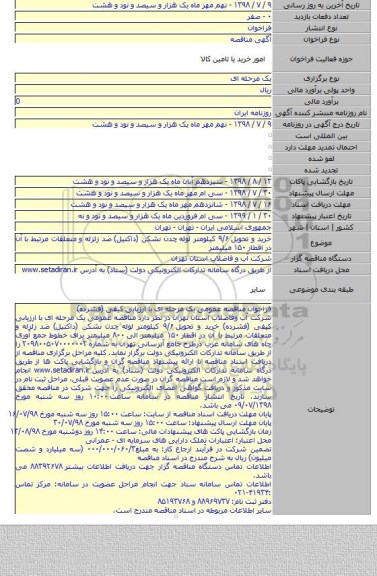 تاریخ آخرین به روز رسانی ۹ / ۷ / ۱۳۹۸ - نهم مهر ماه یک هزار و سیصد و نود و هشت
تعداد دفعات بازدید ۰ - صفر
نوع انتشار فراخوان
نوع فراخوان آگهی مناقصه
حوزه فعالیت فراخوان امور خرید یا تامین کالا
نوع برگزاری یک مرحله ای
واحد پولی برآورد مالی ریال
برآورد مالی 0
نام روزنامه منتشر کننده آگهی روزنامه ایران
تاریخ درج آگهی در روزنامه ۹ / ۷ / ۱۳۹۸ - نهم مهر ماه یک هزار و سیصد و نود و هشت
بین المللی است
احتمال تمدید مهلت دارد
لغو شده
تجدید شده
تاریخ بازگشایی پاکات ۱۳ / ۸ / ۱۳۹۸ - سیزدهم آبان ماه یک هزار و سیصد و نود و هشت
مهلت ارسال پیشنهاد ۳۰ / ۷ / ۱۳۹۸ - سی ام مهر ماه یک هزار و سیصد و نود و هشت
مهلت دریافت اسناد ۱۶ / ۷ / ۱۳۹۸ - شانزدهم مهر ماه یک هزار و سیصد و نود و هشت
تاریخ اعتبار پیشنهاد ۳۰ / ۱ / ۱۳۹۹ - سی ام فروردین ماه یک هزار و سیصد و نود و نه
کشور | استان | شهر جمهوری اسلامی ایران - تهران - تهران
موضوع خرید و تحویل ۹/۶ کیلومتر لوله چدن نشکن (داکتیل) ضد زلزله و متعلقات مرتبط با آن
در اقطار ۱۵۰ میلیمتر
دستگاه مناقصه گزار شرکت آب و فاضلاب استان تهران
محل دریافت اسناد از طریق درگاه سامانه تدارکات الکترونیکی دولت (ستاد) به آدرس www.setadiran.ir
طبقه بندی موضوعی سایر
توضیحات
فراخوان مناقصه عمومی یک مرحله ای با ارزیابی کیفی (فشرده)
شرکت آب وفاضلاب استان تهران در نظر دارد مناقصه عمومی یک مرحله ای با ارزیابی
کیفی (فشرده) خرید و تحویل ۹/۶ کیلومتر لوله چدن نشکن (داکتیل) ضد زلزله و
متعلقات مرتبط با آن در اقطار ۱۵۰ میلیمتر الی ۸۰۰ میلیمتر برای خطوط جمع آوری
چاه های سامانه غرب درطرح جامع آبرسانی تهران به شماره
از طریق سامانه تدارکات الکترونیکی دولت برگزار نماید. کلیه مراحل برگزاری مناقصه از
دریافت اسناد مناقصه تا ارائه پیشنهاد مناقصه گران و بازگشایی پاکت ها از طریق
درگاه سامانه تدارکات الکترونیکی دولت (ستاد) به آدرس www.setadiran.ir انجام
خواهد شد و لازم است مناقصه گران در صورت عدم عضویت قبلی، مراحل ثبت نام در
سایت مذکور و دریافت گواهی امضای الکترونیکی را جهت شرکت در مناقصه محقق
سازند. تاریخ انتشار مناقصه در سامانه ساعت ۱۰:۰۰ روز سه شنبه مورخ
۰۹/۰۷/۱۳۹۸ می باشد.
پایان مهلت دریافت اسناد مناقصه از سایت: ساعت ۱۵:۰۰ روز سه شنبه مورخ ۱۶/۰۷/۹۸
پایان مهلت ارسال پیشنهاد: ساعت ۱۵:۰۰ روز سه شنبه مورخ ۳۰/۰۷/۹۸
زمان بازگشایی پاکت های پیشنهادات مالی: ساعت ۱۴:۰۰ روز دوشنبه مورخ ۱۳/۰۸/۹۸
محل اعتبار: اعتبارات تملک دارایی های سرمایه ای - عمرانی
تضمین شرکت در فرآیند ارجاع کار: به مبلغ ۳/۰۶۰/۰۰۰/۰۰۰ (سه میلیارد و شصت
میلیون) ریال به شرح مندرج در اسناد مناقصه
اطلاعات تماس دستگاه مناقصه گزار جهت دریافت اطلاعات بیشتر ۸۸۳۹۲۶۷۸ می
باشد.
اطلاعات تماس سامانه ستاد جهت انجام مراحل عضویت در سامانه: مرکز تماس
۰۲۱-۴۱۹۳۴:
دفتر ثبت نام: ۸۸۹۶۹۷۳۷ و ۸۵۱۹۳۷۶۸
سایر اطلاعات مربوطه در اسناد مناقصه مندرج است.